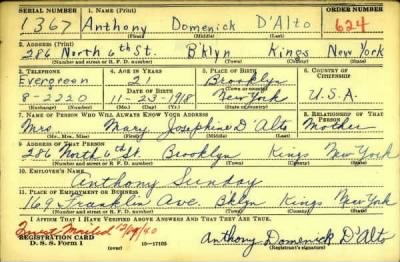 SERIAL NUMBER 1. NAME (Print) ORDER NUMBER
1367 Anthony Domenick D'Alto 624
2. ADDRESS (Print)
286 North 6th St. B'klyn Kings New York
(Number and street or R. F. D. number) (Town) (County) (State)
3. TELEPHONE 4. AGE IN YEARS 5. PLACE OF BIRTH 6. COUNTRY OF CITIZENSHIP
Evergreen 21 Brooklyn
DATE OF BIRTH (Town or county)
8-2220 11-23-1918 New York U.S.A.
(Exchange) (Number) (Mo.) (Day) (Yr.) (State or country)
7. NAME OF PERSON WHO WILL ALWAYS KNOW YOUR ADDRESS 8. RELATIONSHIP OF THAT PERSON
Mrs. Mary Josephine D'Alto Mother
(Mr., Mrs., Miss) (First) (Middle) (Last)
9. ADDRESS OF THAT PERSON
286 North 6th St Brooklyn Kings New York
(Number and street or R. F. D. number) (Town) (County) (State)
10. EMPLOYER'S NAME
Anthony Sunday
11. PLACE OF EMPLOYMENT OR BUSINESS
169 Franklin Ave. Bklyn Kings New York
(Number and street or R. F. D. number) (Town) (County) (State)
I AFFIRM THAT I HAVE VERIFIED ABOVE ANSWERS AND THAT THEY ARE TRUE.
Mailed
REGISTRATION CARD
D. S. S. Form 1 (over) 16-17105 Anthony Domenick D'Alto
(Registrant's signature)